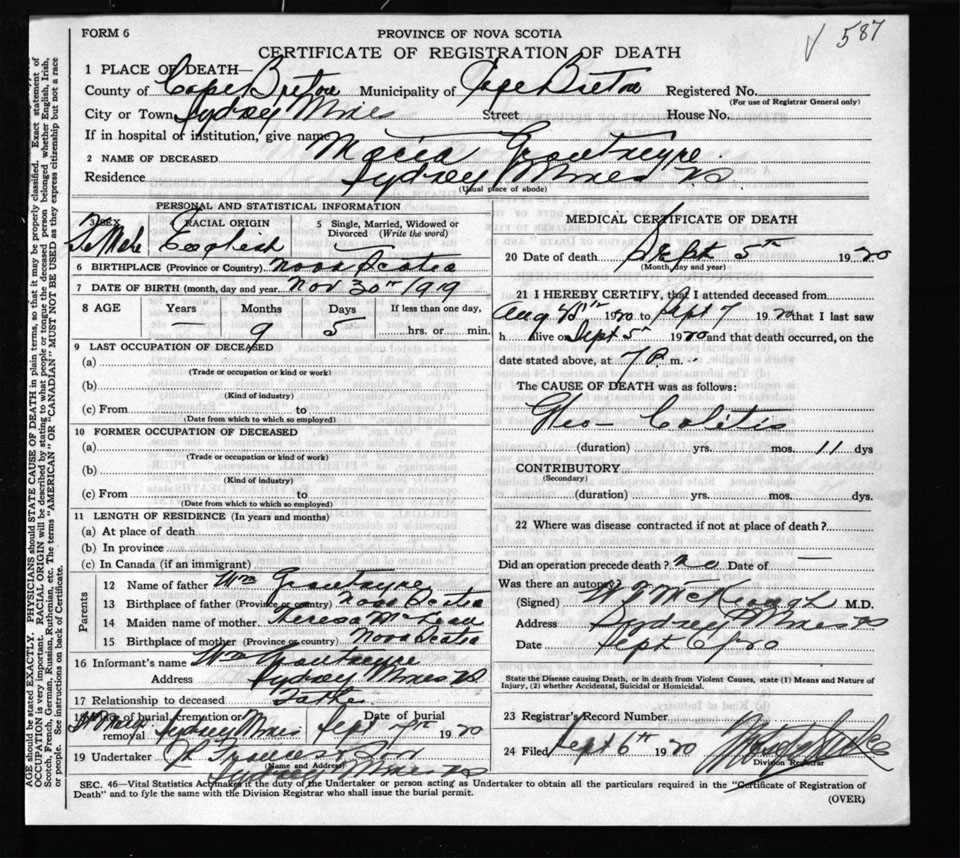 √ 587
FORM 6
PROVINCE OF NOVA SCOTIA
CERTIFICATE OF REGISTRATION OF DEATH
1 PLACE OF DEATH—
County of Cape Breton Municipality of Cape Breton Registered No.
(For use of Registrar General only)
City or Town Sydney Mines Street House No.
If in hospital or institution, give name
2 NAME OF DECEASED Maria
Residence Sydney Mines NS
(Usual place of abode)
PERSONAL AND STATISTICAL INFORMATION
3 SEX Female
RACIAL ORIGIN English
5 Single, Married, Widowed or Divorced (Write the word)
6 BIRTHPLACE (Province or Country) Nova Scotia
7 DATE OF BIRTH (month, day and year) Nov 30th 1919
8 AGE Years Months Days If less than one day,
— 9 5 hrs. or min.
9 LAST OCCUPATION OF DECEASED
(a)
(Trade or occupation or kind or work)
(b)
(Kind of industry)
(c) From to
(Date from which to which so employed)
10 FORMER OCCUPATION OF DECEASED
(a)
(Trade or occupation or kind or work)
(b)
(Kind of industry)
(c) From to
(Date from which to which so employed)
11 LENGTH OF RESIDENCE (In years and months)
(a) At place of death
(b) In province
(c) In Canada (if an immigrant)
Parents
12 Name of father Wm
13 Birthplace of father (Province or country) Nova Scotia
14 Maiden name of mother Theresa McLean
15 Birthplace of mother (Province or country) Nova Scotia
16 Informant's name Wm
Address Sydney Mines NS
17 Relationship to deceased Father
18 Place of burial, cremation or removal Sydney Mines Date of burial Sept 1920
19 Undertaker
(Name and Address)
Sydney Mines NS
MEDICAL CERTIFICATE OF DEATH
20 Date of death Sept 5th 1920
(Month, day and year)
21 I HEREBY CERTIFY, that I attended deceased from
Aug 1920 to Sept 7 1920 that I last saw
h alive on Sept 5th 1920 and that death occurred, on the
date stated above, at 7 P. m.
The CAUSE OF DEATH was as follows:
Ileo-Colitis
(duration) yrs. mos. 11 dys
CONTRIBUTORY
(Secondary)
(duration) yrs. mos. dys.
22 Where was disease contracted if not at place of death?
Did an operation precede death? no Date of —
Was there an autopsy
(Signed) M.D.
Address Sydney Mines NS
Date Sept 6/20
State the Disease causing Death, or in death from Violent Causes, state (1) Means and Nature of
Injury, (2) whether Accidental, Suicidal or Homicidal.
23 Registrar's Record Number
24 Filed Sept 6th 1920
Division Registrar
SEC. 46—Vital Statistics Act makes it the duty of the Undertaker or person acting as Undertaker to obtain all the particulars required in the "Certificate of Registration of
Death" and to fyle the same with the Division Registrar who shall issue the burial permit.
(OVER)
AGE should be stated EXACTLY. PHYSICIANS should STATE CAUSE OF DEATH in plain terms, so that it may be properly classified. Exact statement of
OCCUPATION is very important. RACIAL ORIGIN will be described by stating to what people or tongue the deceased person belonged whether English, Irish,
Scotch, French, German, Russian, Ruthenian, etc. The terms "AMERICAN" OR "CANADIAN" MUST NOT BE USED as they express citizenship but not a race
or people. See instructions on back of Certificate.